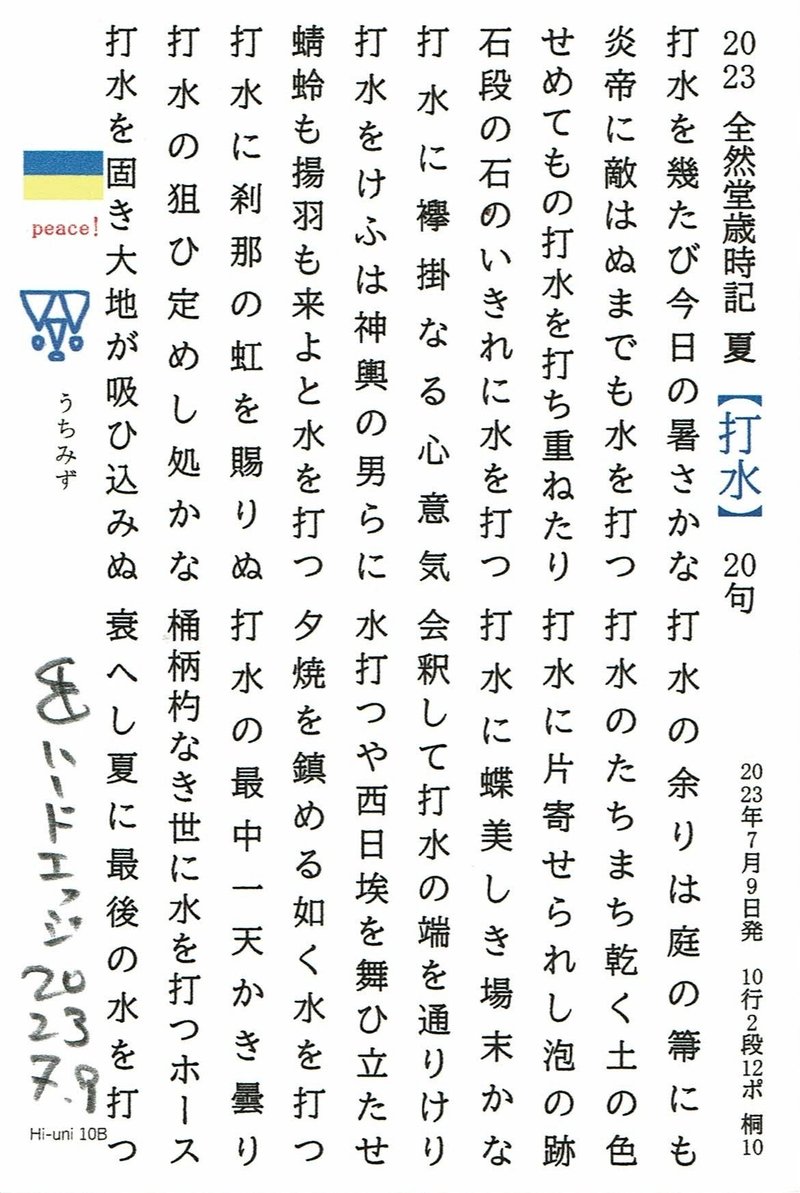 2023 全然堂歳時記 夏 【打水】 20句
2023年7月9日発 10行2段12ポ 桐10
打水を幾たび今日の暑さかな
炎帝に敵はぬまでも水を打つ
せめてもの打水を打ち重ねたり
石段の石のいきれに水を打つ
打水に襷掛なる心意気
打水をけふは神輿の男らに
蜻蛉も揚羽も来よと水を打つ
打水に刹那の虹を賜りぬ
打水の狙ひ定めし処かな
打水を固き大地が吸ひ込みぬ
打水の余りは庭の箒にも
打水のたちまち乾く土の色
打水に片寄せられし泡の跡
打水に蝶美しき場末かな
会釈して打水の端を通りけり
水打つや西日埃を舞ひ立たせ
夕焼を鎮める如く水を打つ
打水の最中一天かき曇り
桶柄杓なき世に水を打つホース
衰へし夏に最後の水を打つ
peace!
うちみず
ハードエッジ
2023
7.9
Hi-uni 10B